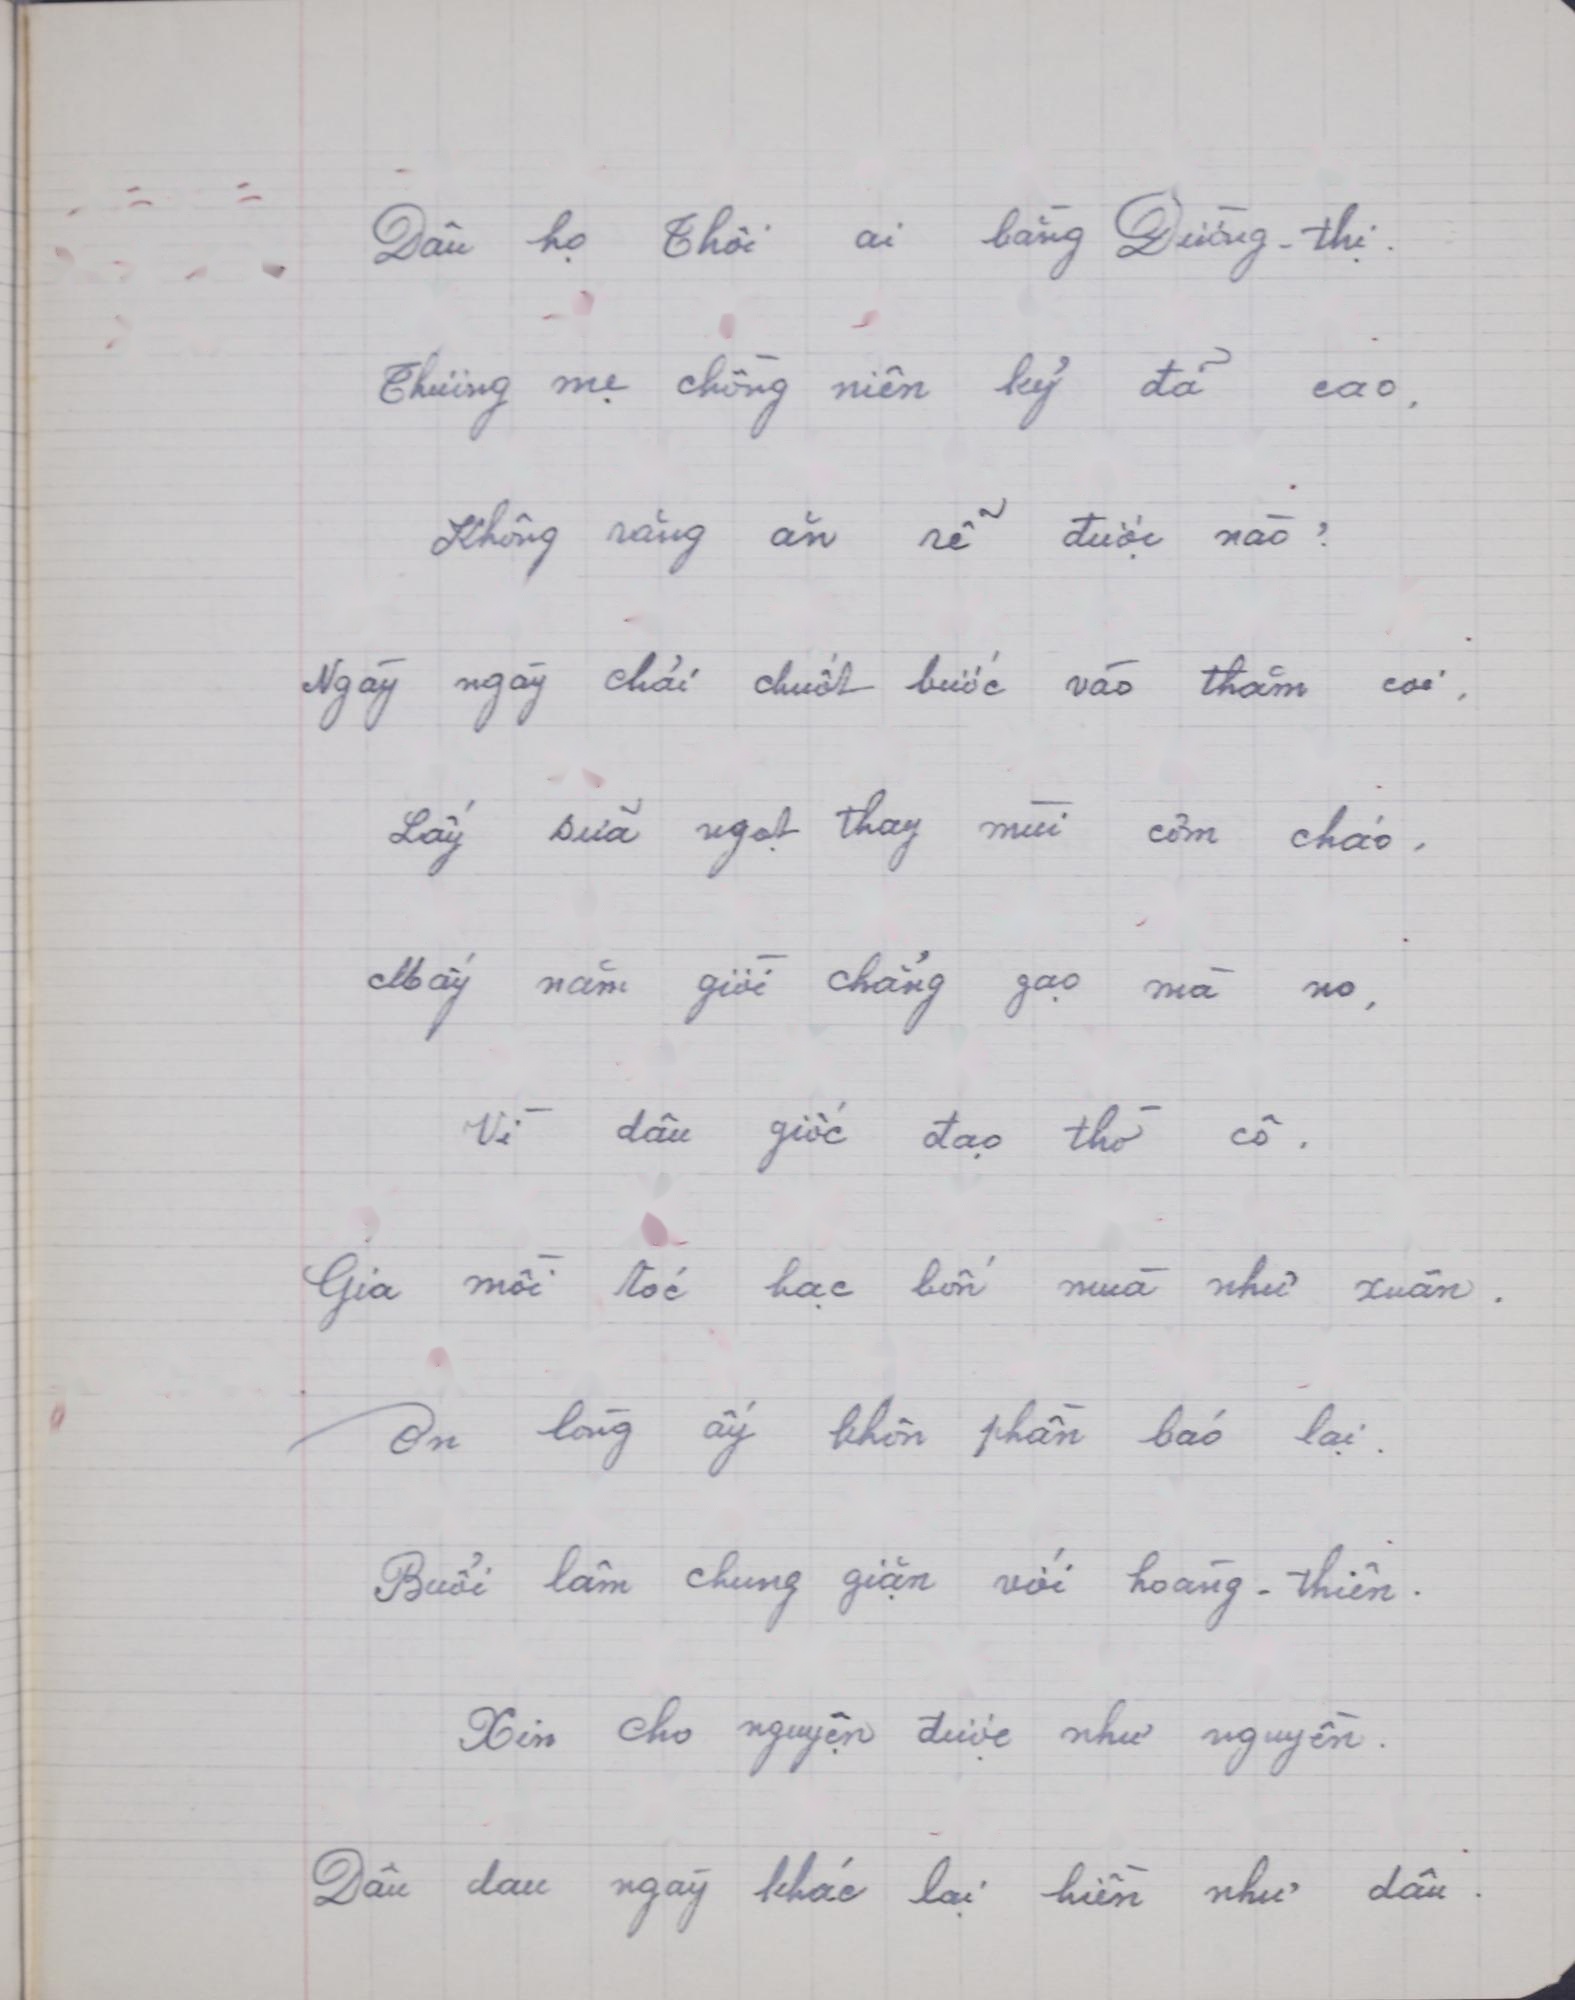 Dâu họ Thôi ai bằng Đường-thị.
Thương mẹ chồng niên kỷ đã cao,
Không răng ăn rễ được nào?
Ngày ngày chải chuốt bước vào thăm coi,
Lấy sữa ngọt thay mùi cơm cháo,
Mấy năm giời chẳng gạo mà no,
Vì dâu giốc đạo thờ cô.
Gia mồi tóc hạc bốn mùa như xuân.
Ơn lòng ấy khôn phần báo lại.
Buổi lâm chung giặn với hoàng-thiên.
Xin cho nguyện được như nguyền.
Dâu dau ngày khác lại hiền như dâu.